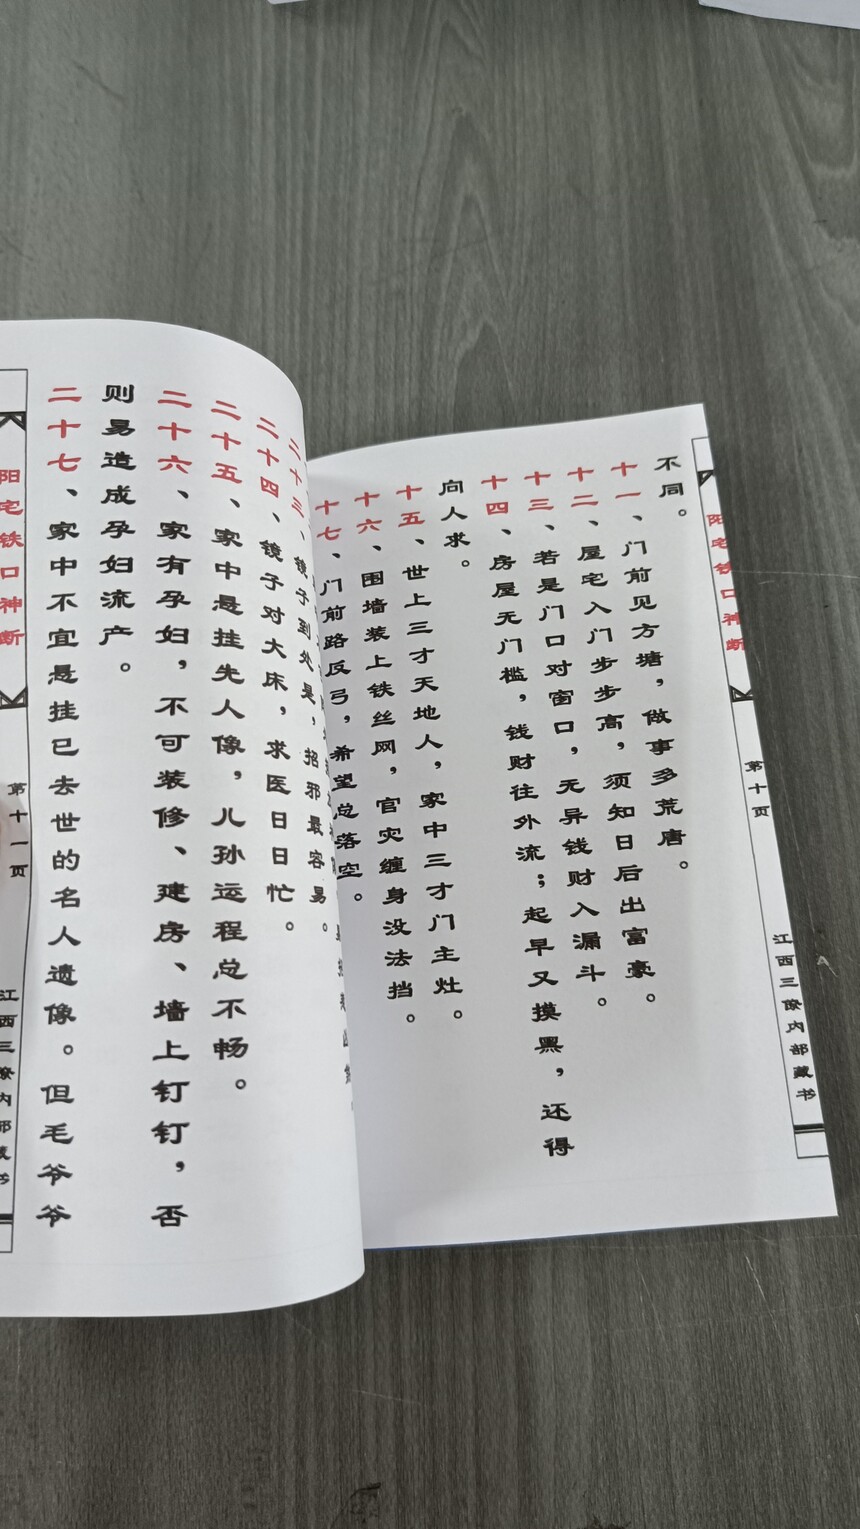 阳宅铁口神断
第十页
江西三僚内部藏书
不同。
十一、门前见方塘，做事多荒唐。
十二、屋宅入门步步高，须知日后出富豪。
十三、若是门口对窗口，无异钱财入漏斗。
十四、房屋无门槛，钱财往外流；起早又摸黑，还得
向人求。
十五、世上三才天地人，家中三才门主灶。
十六、围墙装上铁丝网，官灾缠身没法挡。
十七、门前路反弓，希望总落空。
二十三、镜子到处是，招邪最容易。
二十四、镜子对大床，求医日日忙。
二十五、家中悬挂先人像，儿孙运程总不畅。
二十六、家有孕妇，不可装修、建房、墙上钉钉，否
则易造成孕妇流产。
二十七、家中不宜悬挂已去世的名人遗像。但毛爷爷
阳宅铁口神断
第十一页
江西三僚内部藏书